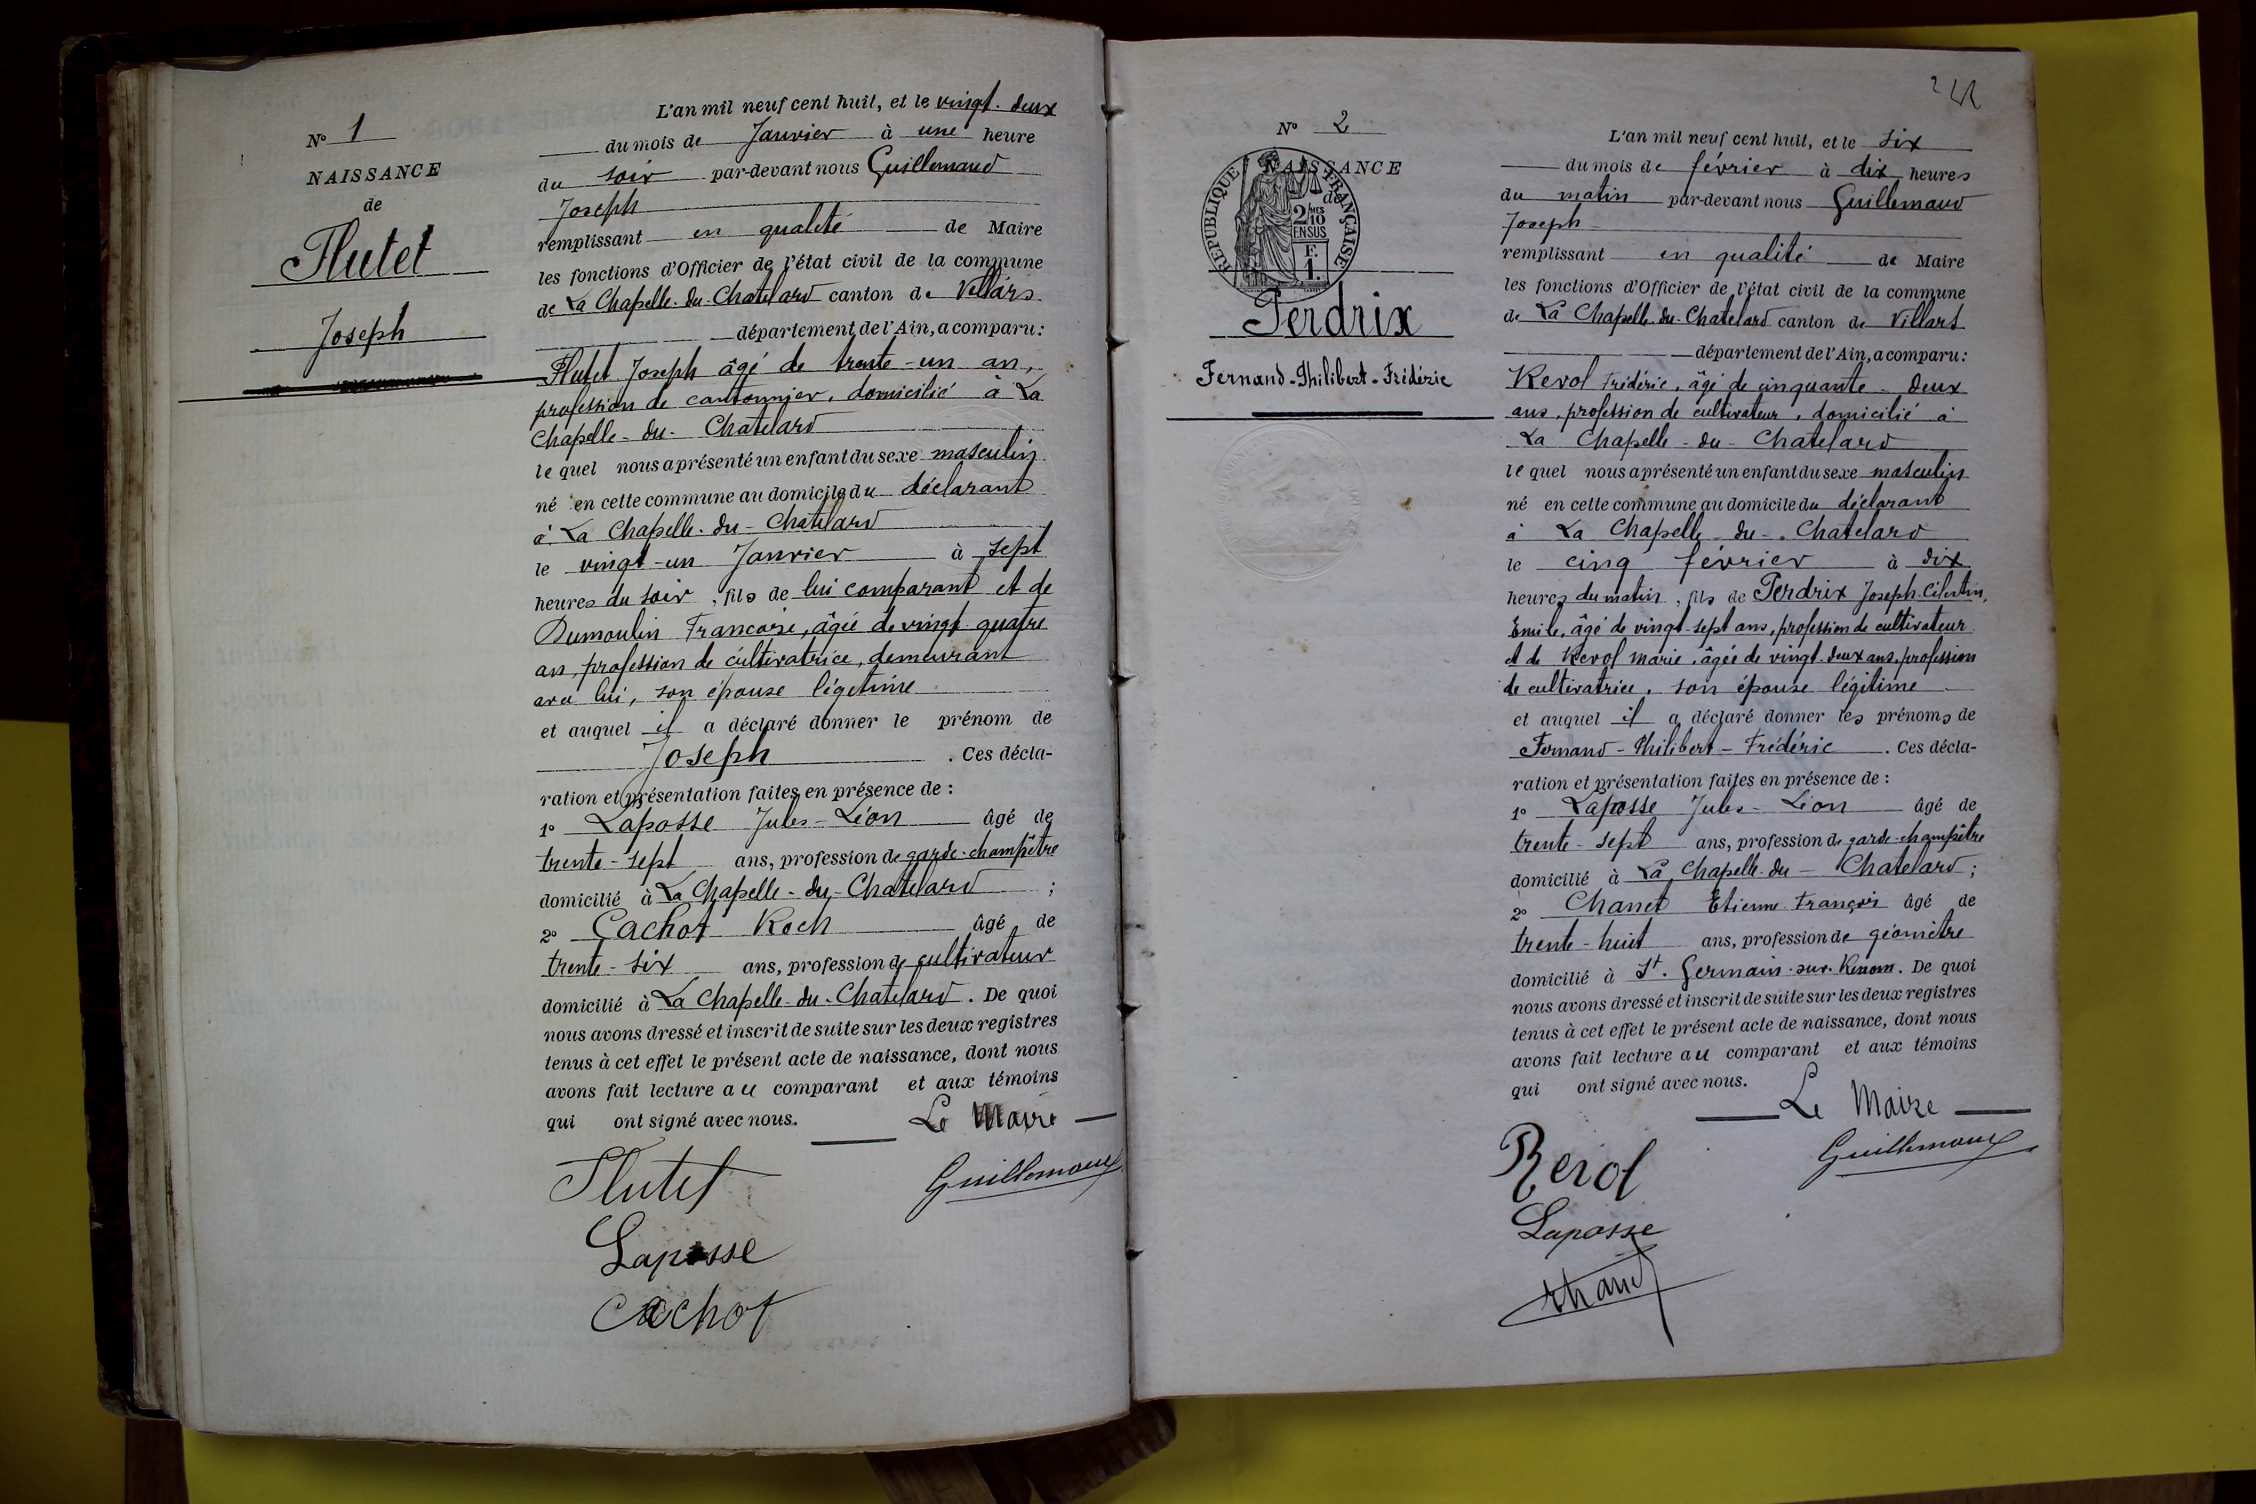 N° 1
NAISSANCE
de
Flutet
Joseph
L'an mil neuf cent huit, et le vingt-deux
du mois de Janvier à une heure
du soir par-devant nous Guillemaud
Joseph
remplissant en qualité de Maire
les fonctions d'Officier de l'état civil de la commune
de La Chapelle-du-Chatelard canton de Villars
département de l'Ain, a comparu:
Flutet Joseph âgé de trente-un an,
profession de cantonnier, domicilié à La
Chapelle-du-Chatelard
lequel nous a présenté un enfant du sexe masculin
né en cette commune au domicile du déclarant
à La Chapelle-du-Chatelard
le vingt-un Janvier à sept
heures du soir, fils de lui comparant et de
Dumoulin Françoise, âgée de vingt-quatre
an, profession de cultivatrice, demeurant
avec lui, son épouse légitime
et auquel il a déclaré donner le prénom de
Joseph. Ces décla-
ration et présentation faites en présence de :
1° Laposse Jules-Léon âgé de
trente-sept ans, profession de garde-champêtre
domicilié à La Chapelle-du-Chatelard ;
2° Cachot Roch âgé de
trente-six ans, profession de cultivateur
domicilié à La Chapelle-du-Chatelard. De quoi
nous avons dressé et inscrit de suite sur les deux registres
tenus à cet effet le présent acte de naissance, dont nous
avons fait lecture au comparant et aux témoins
qui ont signé avec nous. Le Maire
Flutet Guillemaud
Laposse
Cachot
N° 2
NAISSANCE
de
REPUBLIQUE FRANÇAISE
2/10 MES
EN SUS
F.
1.
Perdrix
Fernand-Philibert-Frédéric
L'an mil neuf cent huit, et le six
du mois de février à dix heures
du matin par-devant nous Guillemaud
Joseph
remplissant en qualité de Maire
les fonctions d'Officier de l'état civil de la commune
de La Chapelle-du-Chatelard canton de Villars
département de l'Ain, a comparu:
Revol Frédéric, âgé de cinquante-deux
ans, profession de cultivateur, domicilié à
La Chapelle-du-Chatelard
lequel nous a présenté un enfant du sexe masculin
né en cette commune au domicile du déclarant
à La Chapelle-du-Chatelard
le cinq février à dix
heures du matin, fils de Perdrix Joseph-Célestin,
Emile, âgé de vingt-sept ans, profession de cultivateur
et de Revol Marie, âgée de vingt-deux ans, profession
de cultivatrice, son épouse légitime
et auquel il a déclaré donner les prénoms de
Fernand-Philibert-Frédéric. Ces décla-
ration et présentation faites en présence de :
1° Laposse Jules-Léon âgé de
trente-sept ans, profession de garde-champêtre
domicilié à La Chapelle-du-Chatelard ;
2° Chanet Etienne François âgé de
trente-huit ans, profession de géomètre
domicilié à St. Germain-sur-Renom. De quoi
nous avons dressé et inscrit de suite sur les deux registres
tenus à cet effet le présent acte de naissance, dont nous
avons fait lecture au comparant et aux témoins
qui ont signé avec nous. Le Maire
Revol Guillemaud
Laposse
Chanet